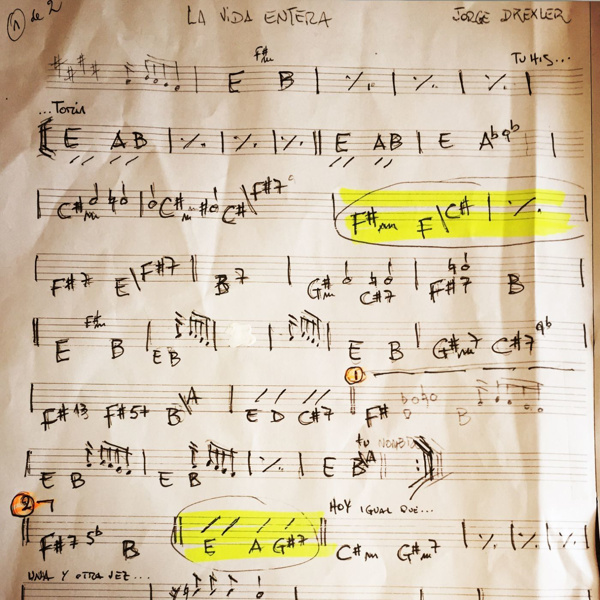 1 de 2 LA VIDA ENTERA JORGE DREXLER
E F#m B TU HIS...
...Toria
E AB E AB E Ab9b
C#m C#m C# F#7 F#m E\C#
F#7 E\F#7 B7 G#m C#7 F#7 B
E F#m B E B E B G#m7 C#7 9b
1
F#13 F#5+ B\A E D C#7 F# B
E B E B E B\A tu NOMBRE
2 HOY IGUAL QUE...
F#7 5b B E A G#7 C#m G#m7
UNA Y OTRA VEZ...